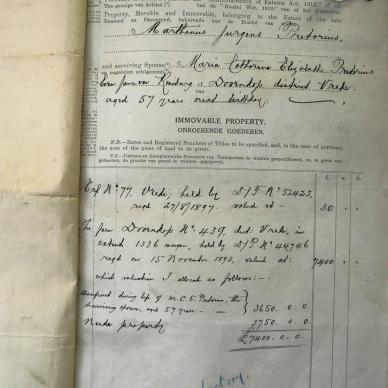 Administration of Estates Act, 1913," of
Ten gevolge van Artikel
van de "Boedel Wet, 1913," van al het Roerend
Property, Movable and Immovable, belonging to the Estate of the late
Roerend en Onroerend, behorende aan de Boedel van
Marthinus Jurgens Pretorius,
and surviving Spouse
Maria Catherina Elizabetha Pretorius
en nagelaten echtgenoot
born Janse van Rensburg of Doorndop district Vrede
aged 57 years next birthday
IMMOVABLE PROPERTY.
ONROERENDE GOEDEREN.
N.B.—Dates and Registered Numbers of Titles to be specified, and, in the case of portions,
the area of the piece of land to be given.
N.B.—Datums en Geregistreerde Nummers van Transporten te worden gespecificeerd, en, in geval van
gedeelten, de grootte er van te worden opgegeven.
£ s. d.
Erf No 77. Vrede, held by D/T No 52423,
regd 27/8/1897. valued at - 30 . .
The farm Doorndop No 439, dist: Vrede, in
extent 1336 morgen, held by D/T No 44746
regd on 15 November 1893, valued at: 7400 . .
which valuation I allowed as follows:-
Usufruct during life of M.C.E. Pretorius, the
surviving spouse, aged 57 years:- } 3650. 0. 0
Nude property 3750. 0. 0
£7400. 0. 0